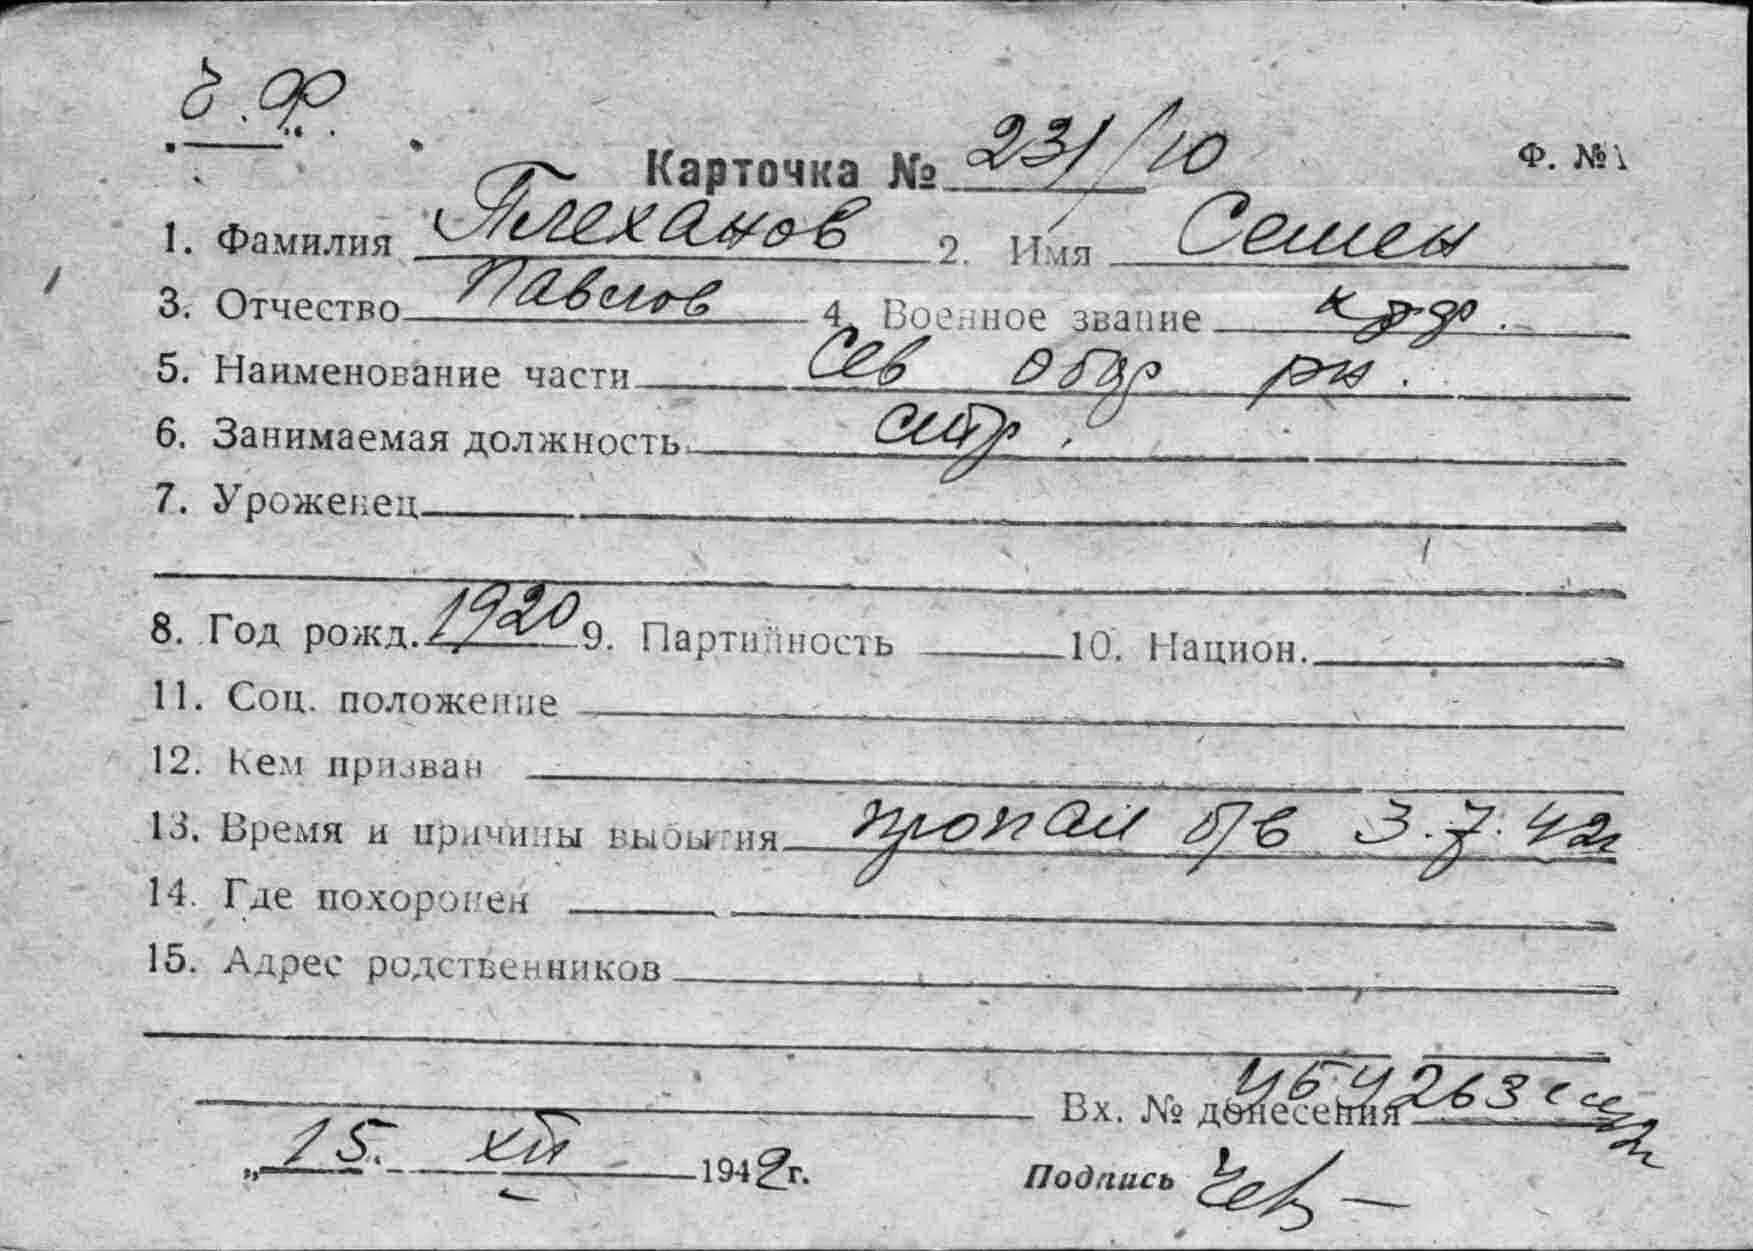 Ч.Ф.
Карточка № 231/10 Ф. №1
1. Фамилия Плеханов 2. Имя Семен
3. Отчество Павлов 4. Военное звание кр-ф.
5. Наименование части Сев обор рн.
6. Занимаемая должность стр.
7. Уроженец
8. Год рожд. 1920 9. Партийность 10. Национ.
11. Соц. положение
12. Кем призван
13. Время и причины выбытия пропал б/в 3.7.42г
14. Где похоронен
15. Адрес родственников
Вх. № донесения
„15. XII 1942 г. Подпись